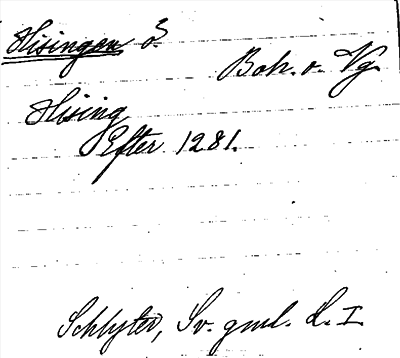 Hisingen ö.
Boh. o. Vg.
Hising
Efter 1281.
Schlyter, Sv. gml. L. I